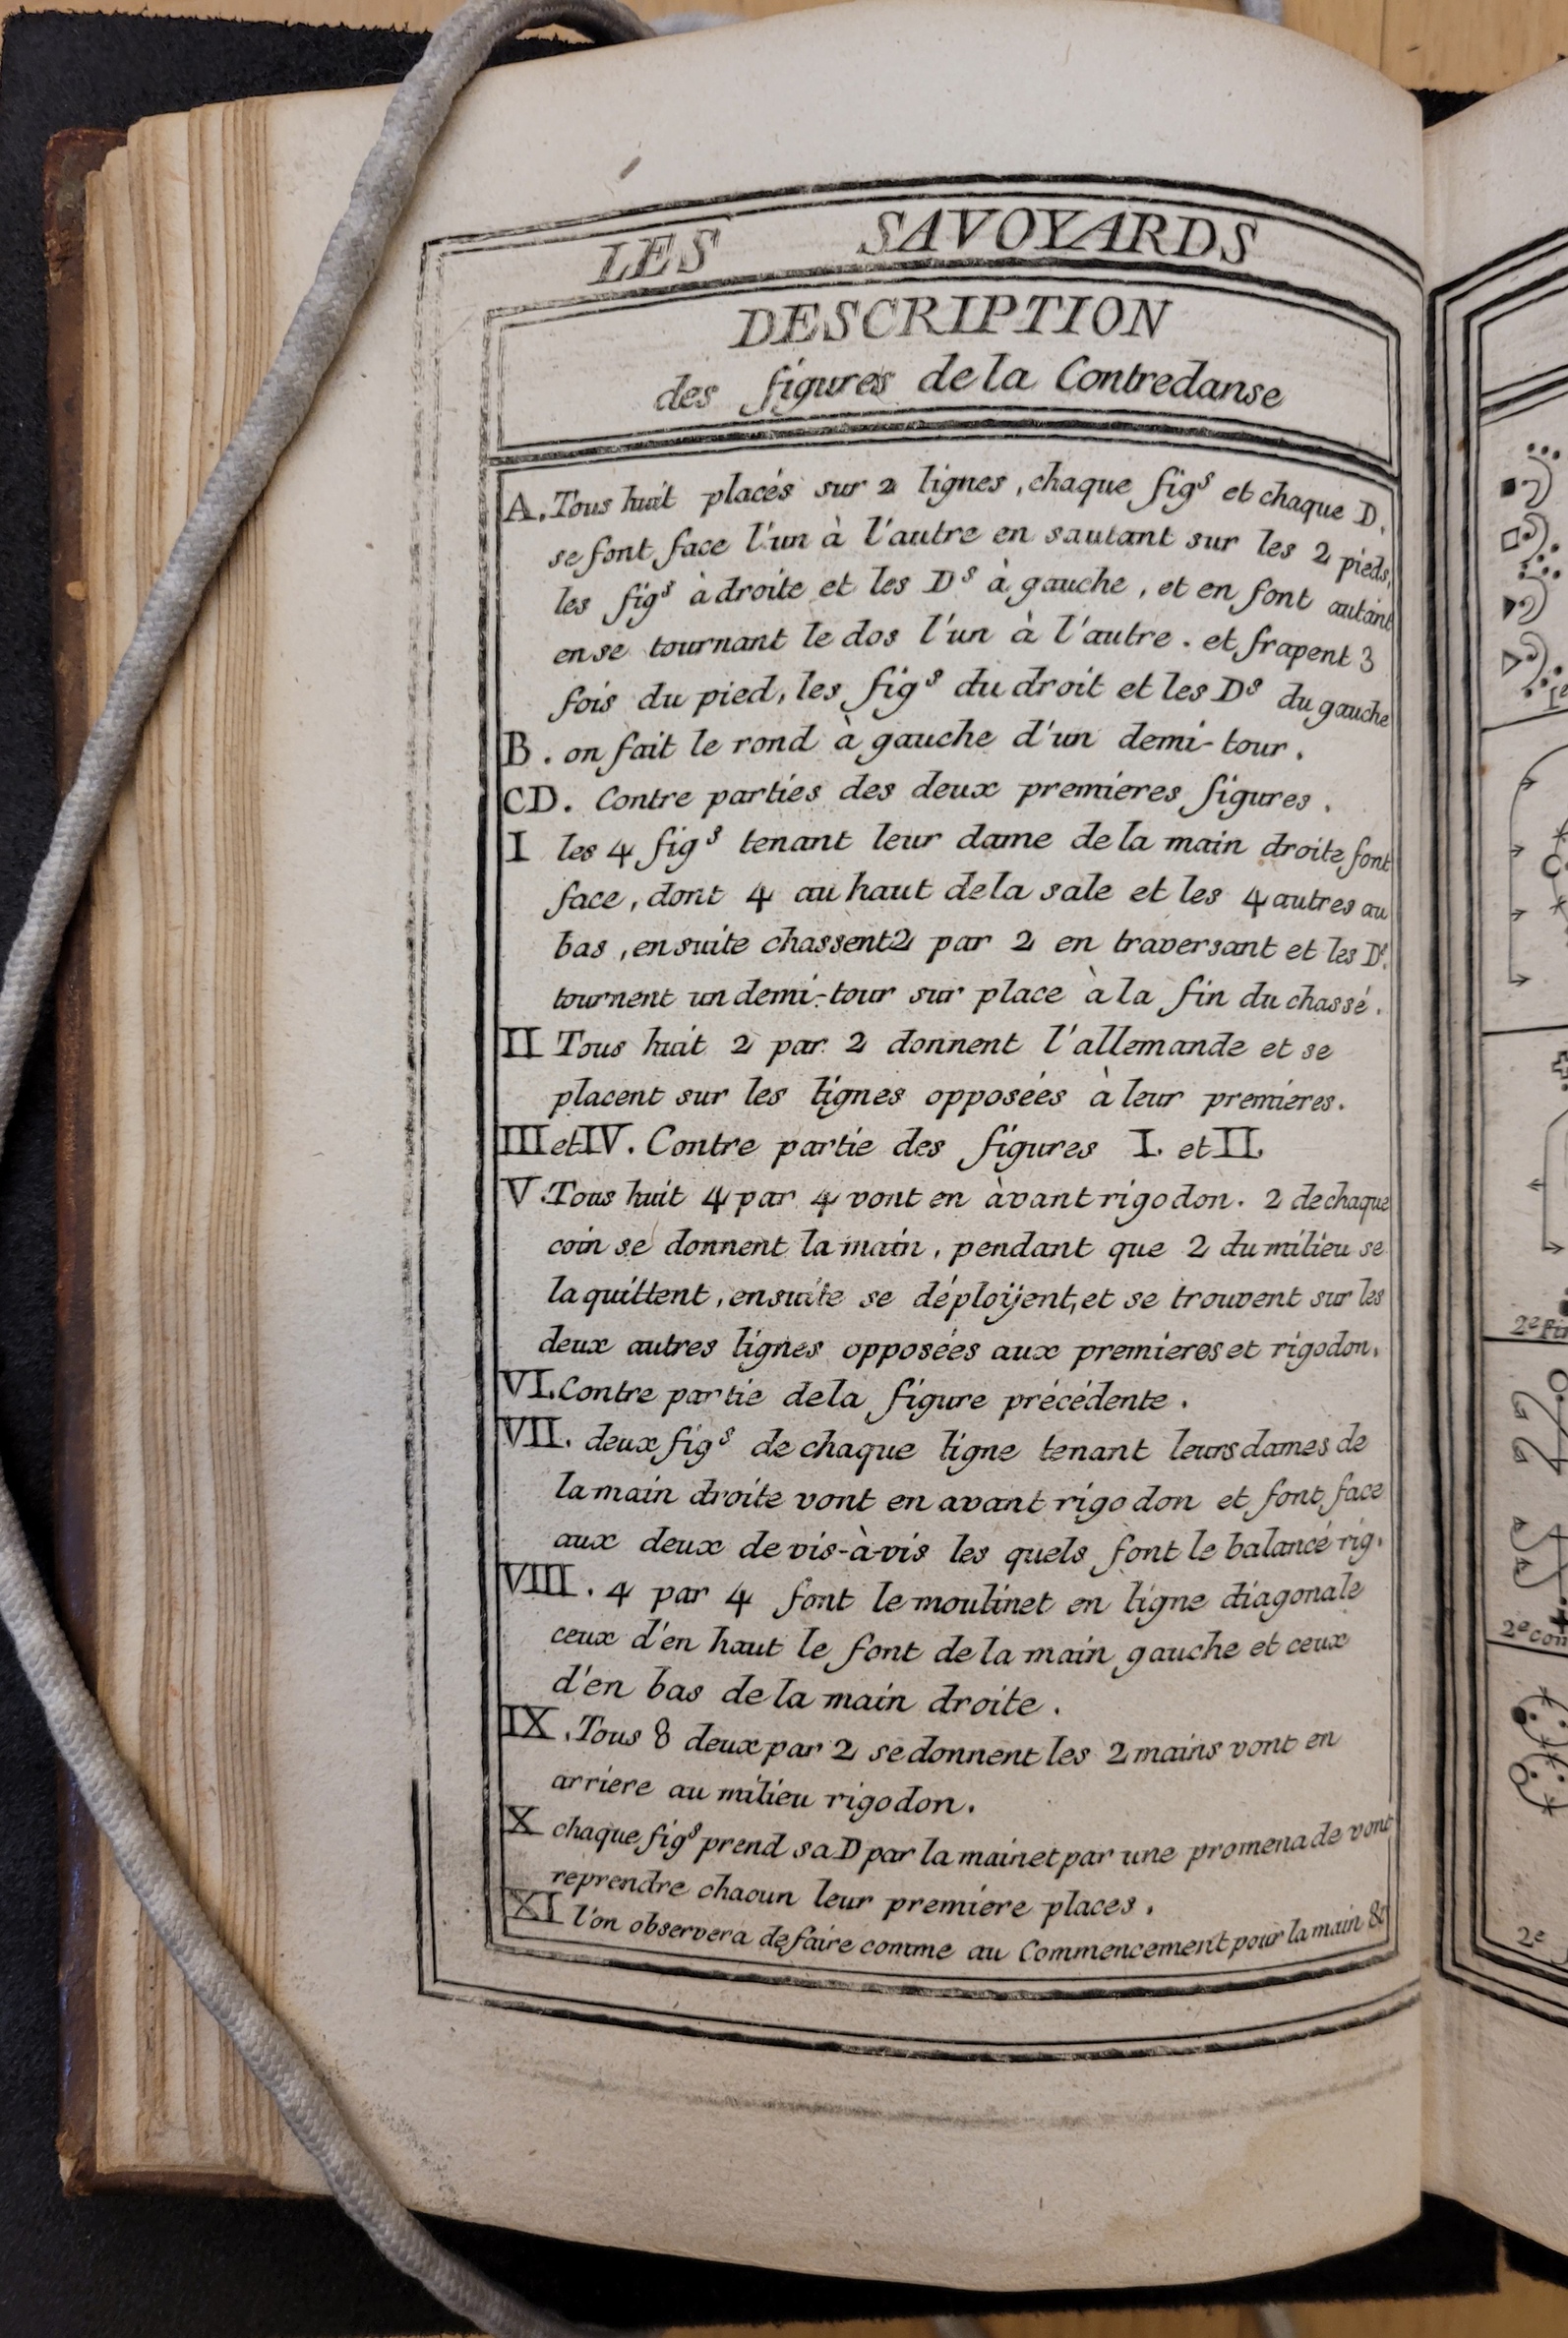 LES SAVOYARDS
DESCRIPTION
des figures de la Contredanse
A. Tous huit placés sur 2 lignes, chaque figˢ et chaque D.
se font face l'un à l'autre en sautant sur les 2 pieds,
les figˢ à droite et les Dˢ à gauche, et en font autant
en se tournant le dos l'un à l'autre. et frapent 3
fois du pied, les figˢ du droit et les Dˢ du gauche
B. on fait le rond à gauche d'un demi-tour.
CD. Contre parties des deux premieres figures.
I les 4 figˢ tenant leur dame de la main droite font
face, dont 4 au haut de la sale et les 4 autres au
bas, ensuite chassent 2 par 2 en traversant et les Dˢ.
tournent un demi-tour sur place à la fin du chassé.
II Tous huit 2 par 2 donnent l'allemande et se
placent sur les lignes opposées à leur premieres.
III et IV. Contre partie des figures I. et II.
V. Tous huit 4 par 4 vont en àvant rigodon. 2 de chaque
coin se donnent la main, pendant que 2 du milieu se
la quittent, ensuite se déploijent, et se trouvent sur les
deux autres lignes opposées aux premieres et rigodon.
VI. Contre partie de la figure précédente.
VII. deux figˢ de chaque ligne tenant leurs dames de
la main droite vont en avant rigodon et font face
aux deux de vis-à-vis les quels font le balancé rig.
VIII. 4 par 4 font le moulinet en ligne diagonale
ceux d'en haut le font de la main gauche et ceux
d'en bas de la main droite.
IX. Tous 8 deux par 2 se donnent les 2 mains vont en
arriere au milieu rigodon.
X chaque figˢ prend sa D par la main et par une promenade vont
reprendre chacun leur premiere places.
XI l'on observera de faire comme au Commencement pour la main &c
2ᵉ
2ᵉ
2ᵉ